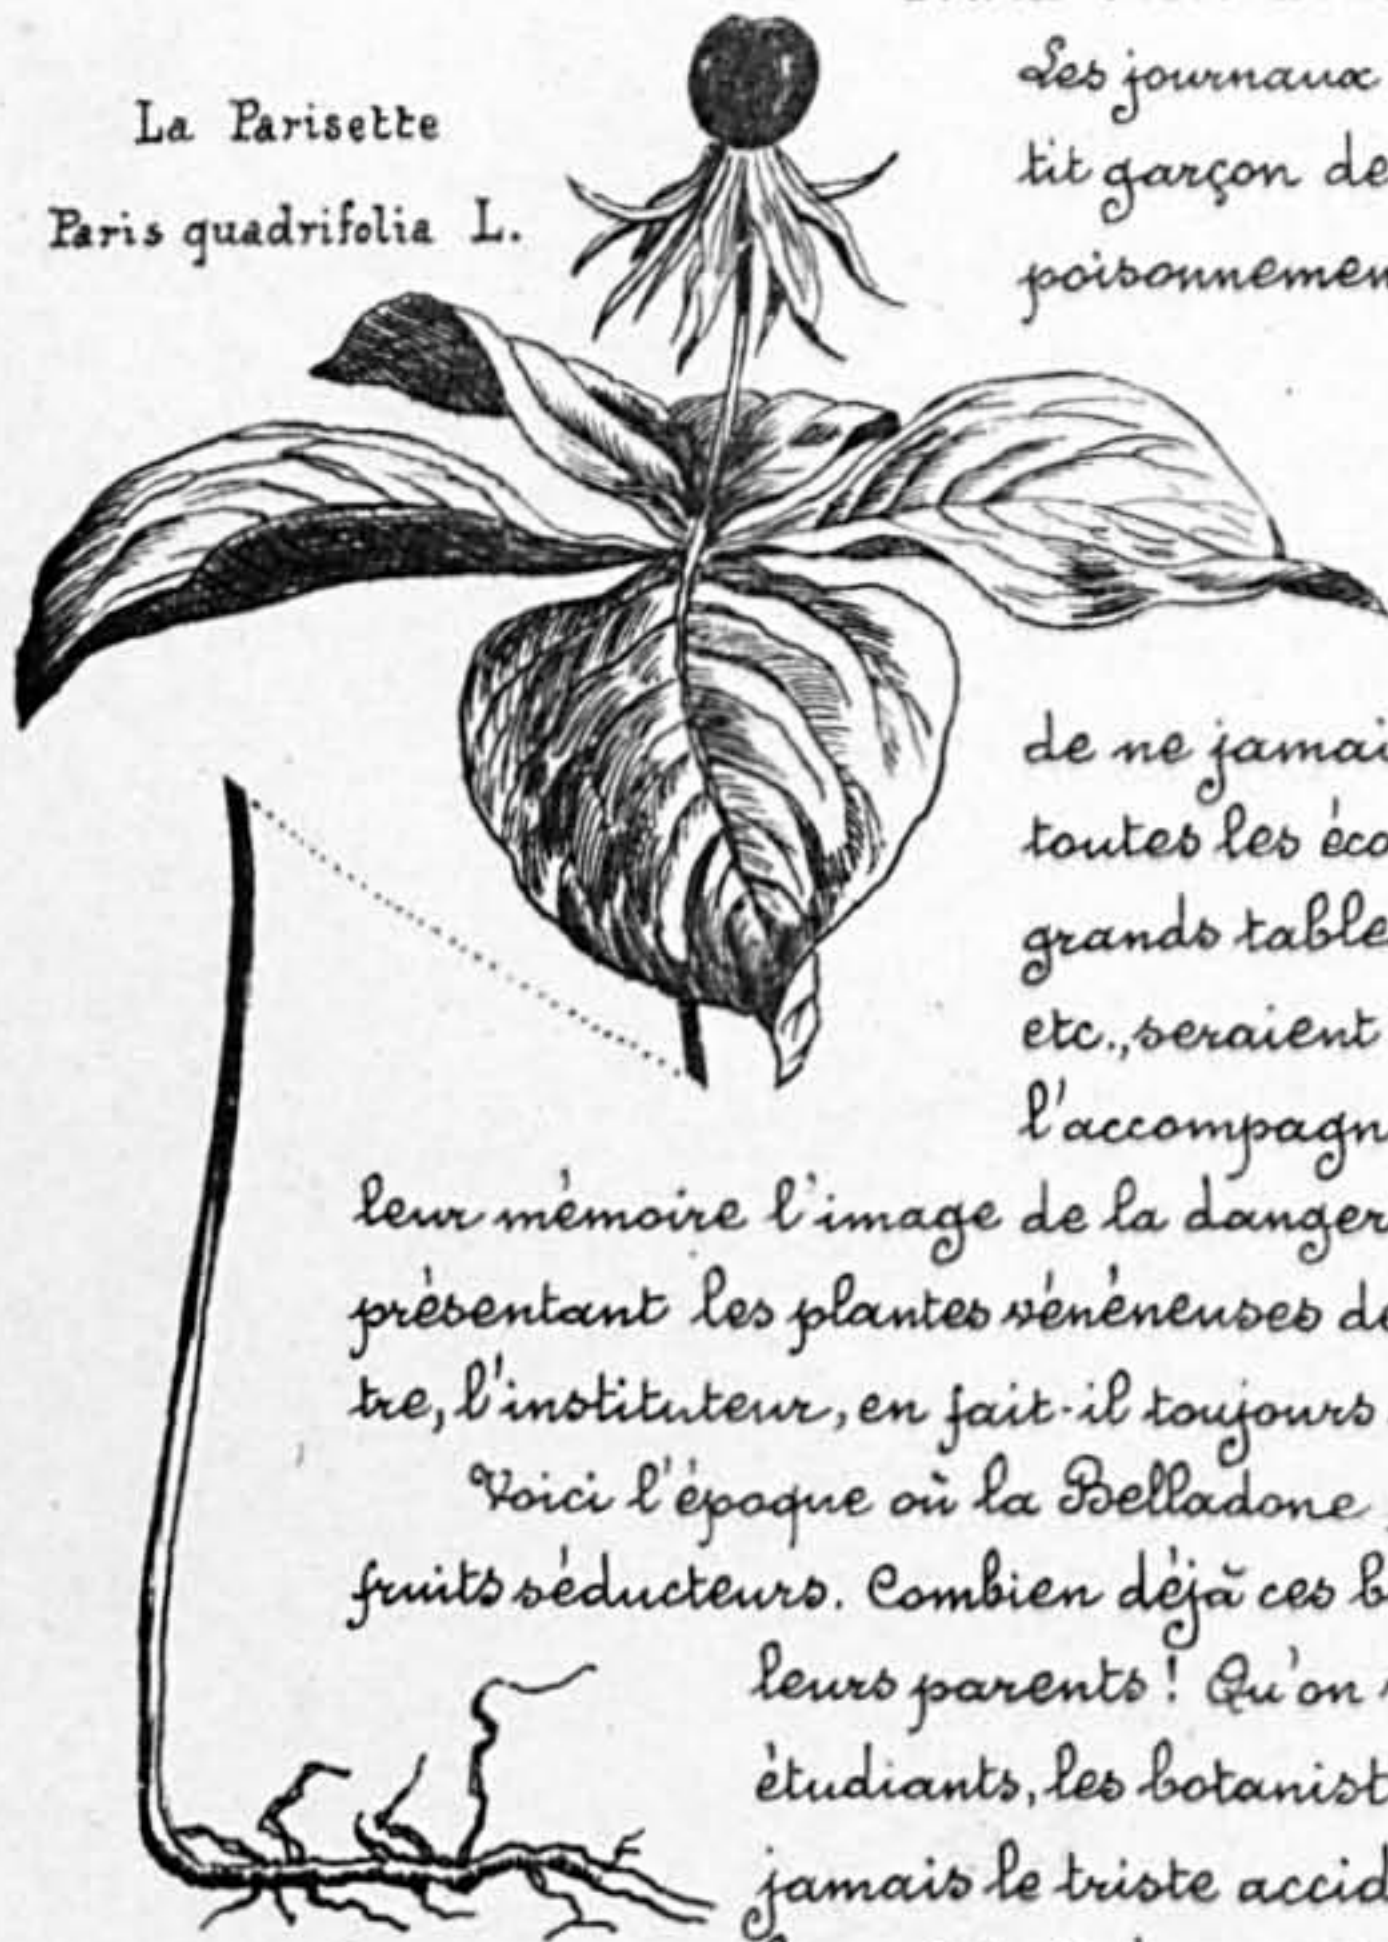 La Parisette
Paris quadrifolia L.
Les journaux
tit garçon de
poisonnemen
de ne jamai
toutes les éco
grands table
etc., seraient
l'accompagn
leur mémoire l'image de la danger
présentant les plantes vénéneuses de
tre, l'instituteur, en fait-il toujours
Voici l'époque où la Belladone
fruits séducteurs. Combien déjà ces b
leurs parents! Qu'on
étudiants, les botanist
jamais le triste accid